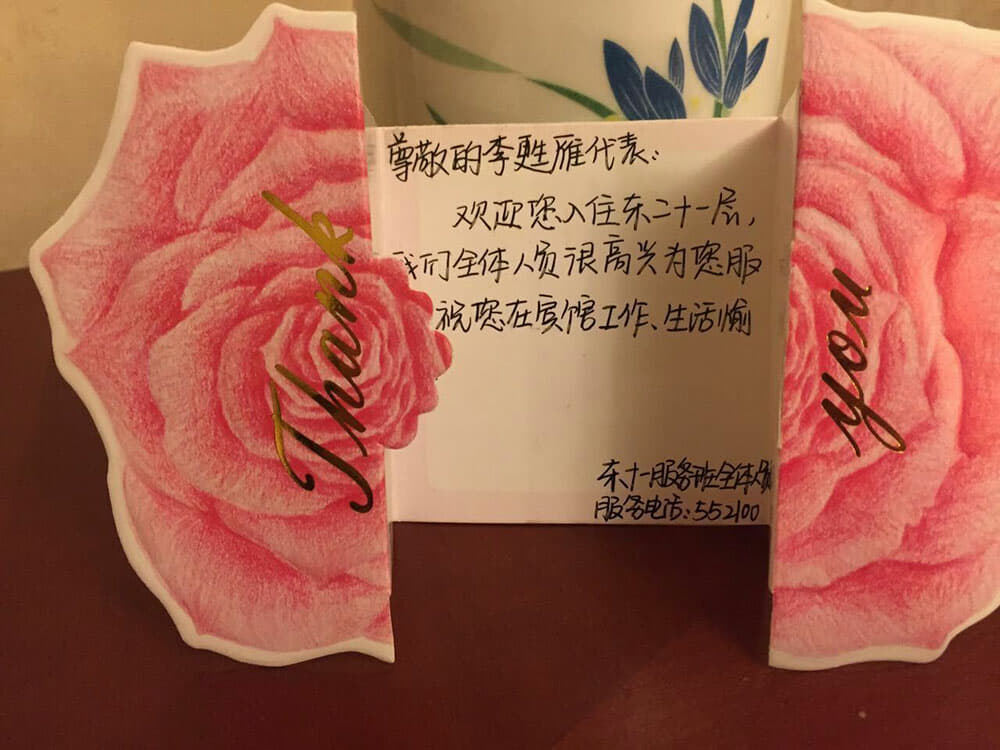 尊敬的李甦雁代表:
欢迎您入住东二十一层,
我们全体人员很高兴为您服
祝您在宾馆工作、生活愉
东十一服务班全体人员
服务电话:552100
Thank
you